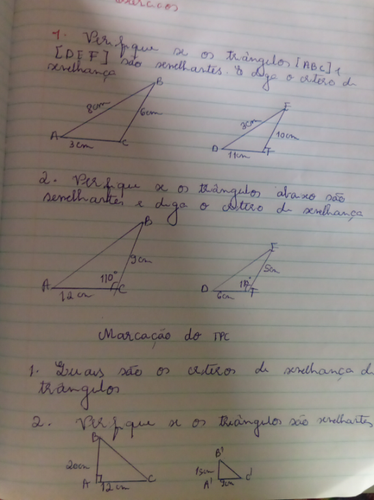 Exercícios
1. Verifique se os triângulos [ABC] e
[DEF] são semelhantes. E diga o critério de
semelhança
B
8cm
6cm
A
3cm
C
E
10cm
D
11cm
F
2. Verifique se os triângulos abaixo são
semelhantes e diga o critério de semelhança
B
9cm
110°
A
12 cm
C
E
5cm
D
6cm
F
Marcação do TPC
1. Quais são os critérios de semelhança de
triângulos
2. Verifique se os triângulos são semelhantes
B
20cm
A
12 cm
C
B'
15cm
A'
9cm
C'